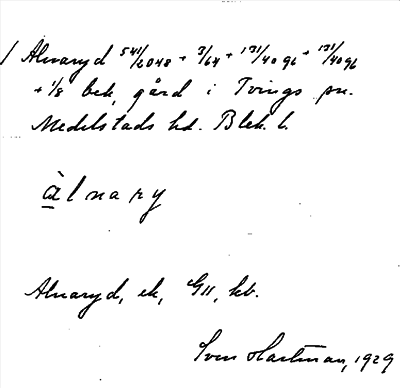 / Alnaryd 541/6048 + 3/64 + 131/4096 + 131/4096
+ 1/8 bek, gård i Tvings sn.
Medelstads hd. Blek. l.
àlnary
Alnaryd, ek, GII, kb.
Sven Hartman, 1929